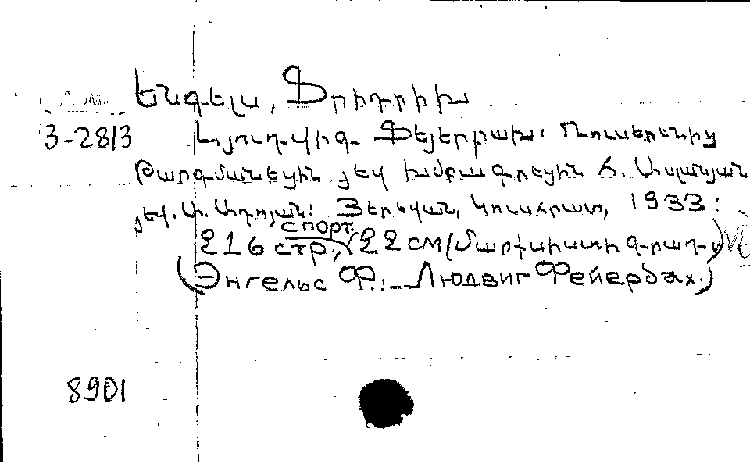 Ենգելս, Ֆրիդրիխ
3-2813 Լյուդվիգ Ֆեյերբախ: Ռուսերենից
Թարգմանեցին յեվ խմբագրեցին Հ.
յեվ. Յերևան, Կուսհրատ, 1933:
спорт.
216 стр., 22 см (մարքսիստի գրադ.)
(Энгельс Ф. — Людвиг Фейербах.)
8901